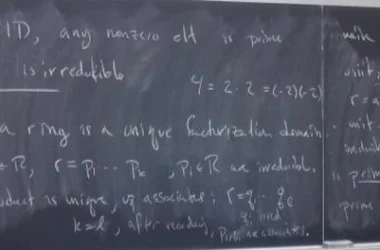 ID, any nonzero elt is prime
is irreducible
4 = 2 · 2 = (-2)(-2)
a ring is a unique factorization domain
∈ R, r = p₁ ⋯ pₖ, pᵢ ∈ R are irreducible.
product is unique, up associates: r = q₁ ⋯ qₗ
qᵢ irred
k = l, after reordering, pᵢ, qᵢ are associates.
unit
r = a
unit
is prime
prime